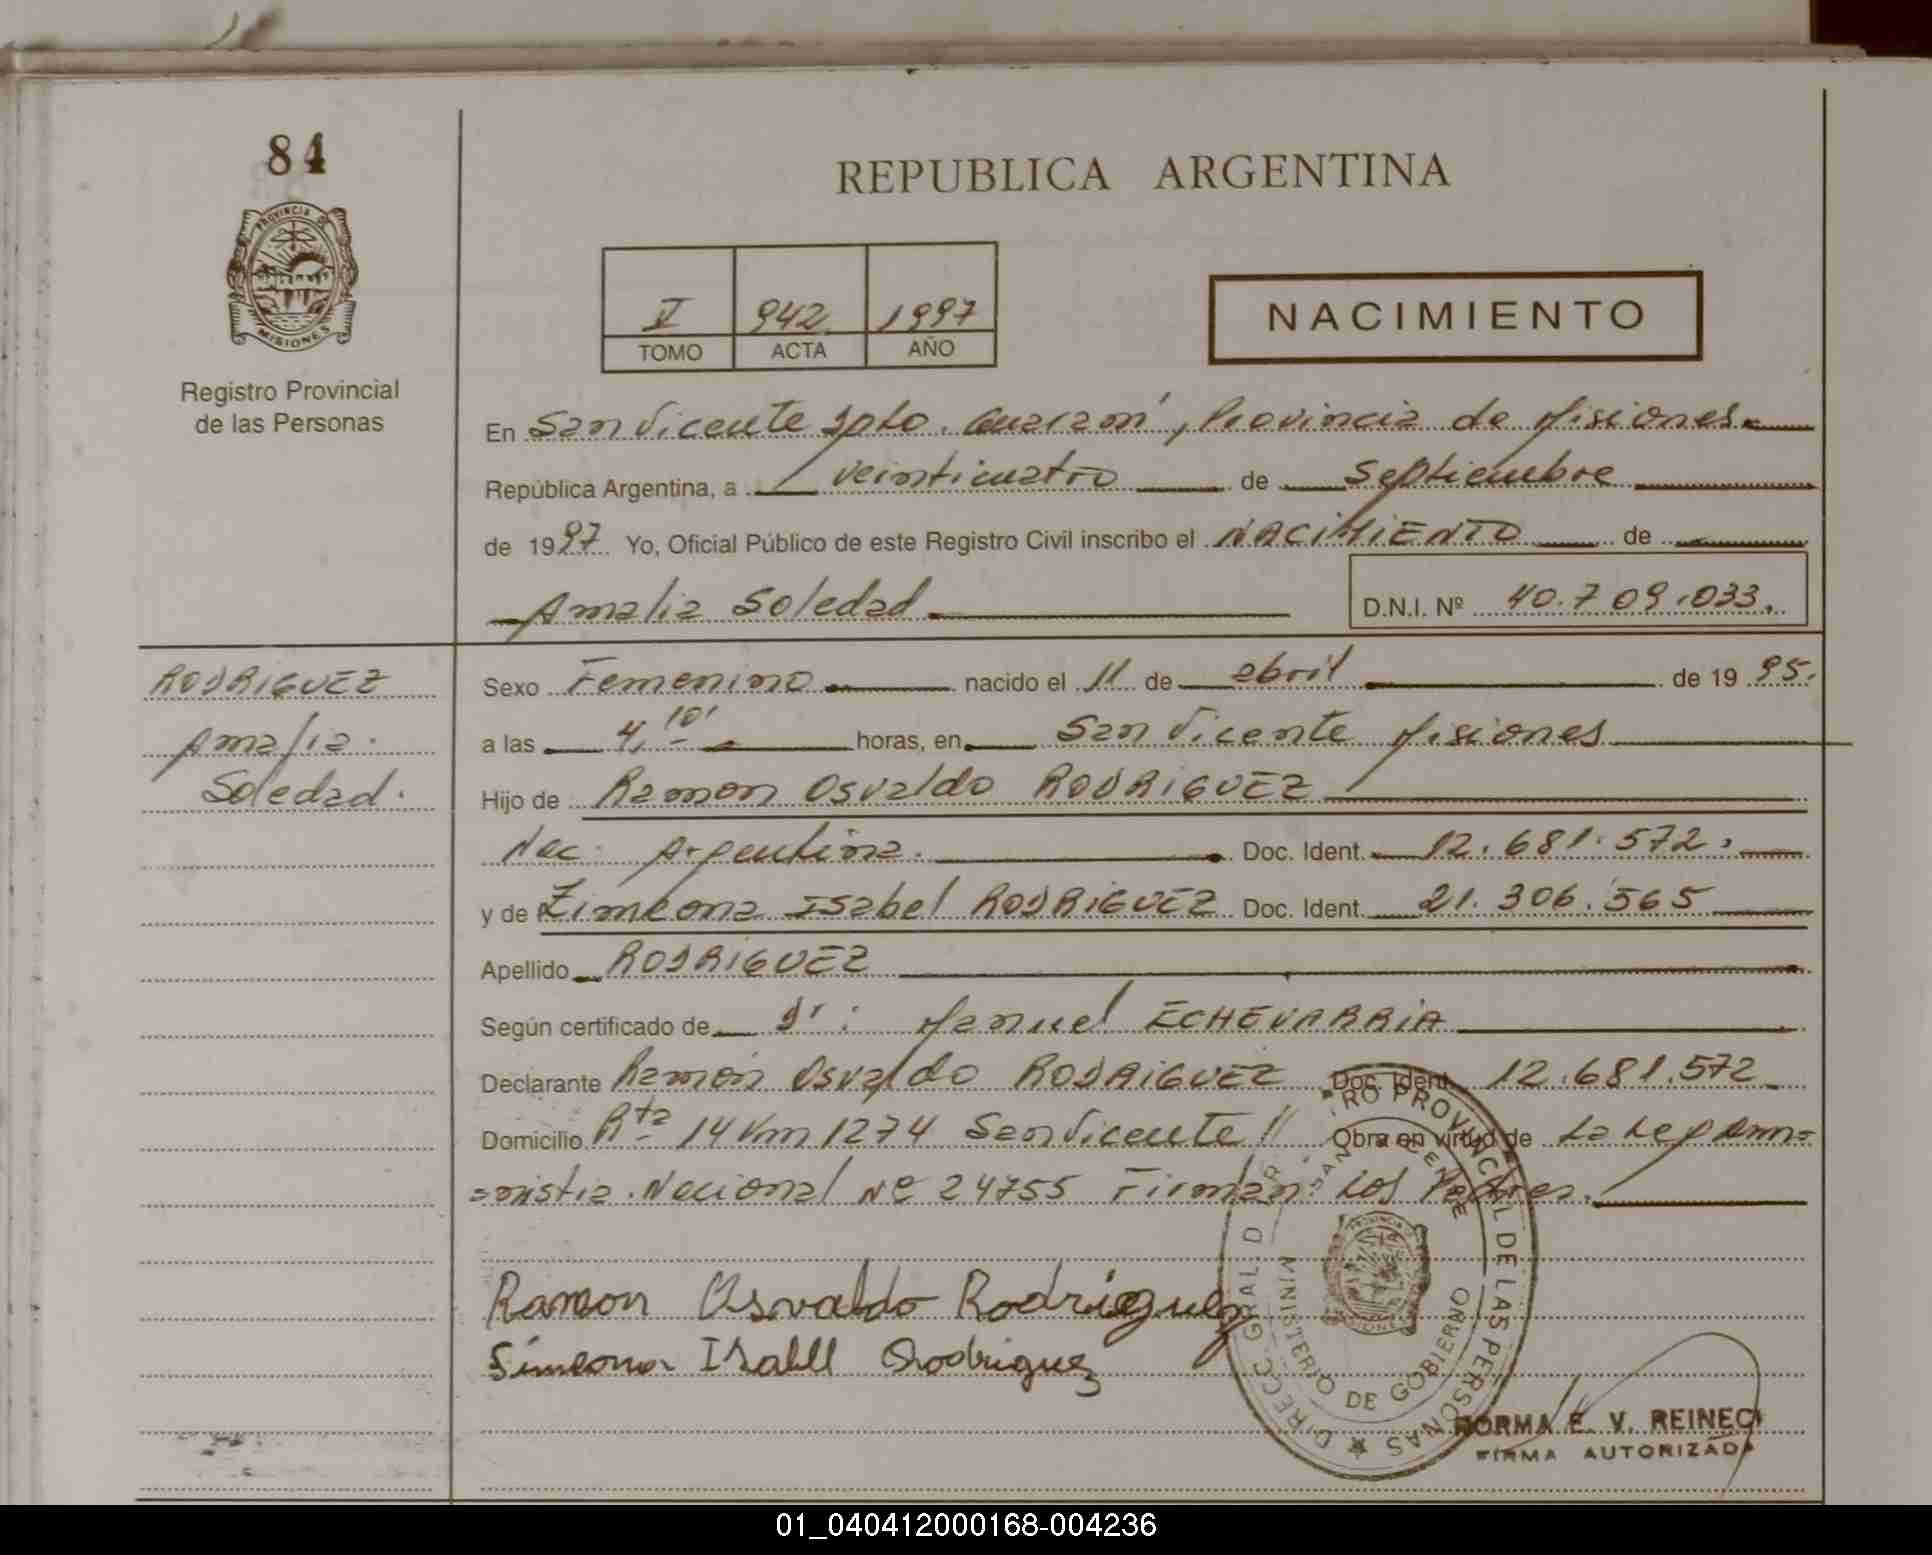 84
REPUBLICA ARGENTINA
PROVINCIA DE
MISIONES
Registro Provincial
de las Personas
V 942 1997
TOMO ACTA AÑO
NACIMIENTO
En San Vicente Dpto. Guaraní, Provincia de Misiones
República Argentina, a veinticuatro de Septiembre
de 1997 Yo, Oficial Público de este Registro Civil inscribo el NACIMIENTO de
Amalia Soledad D.N.I. Nº 40.709.033.
RODRIGUEZ
Amalia
Soledad.
Sexo Femenino nacido el 11 de abril de 1995.
a las 4,10' horas, en San Vicente Misiones
Hijo de Ramon Osvaldo RODRIGUEZ
Nac. Argentina. Doc. Ident. 12.681.572.
y de Zimeona Isabel RODRIGUEZ Doc. Ident. 21.306.565
Apellido RODRIGUEZ
Según certificado de Dr: Manuel ECHEVARRIA
Declarante Ramón Osvaldo RODRIGUEZ Doc. Ident. 12.681.572
Domicilio Rta 14 Km 1274 San Vicente // Obra en virtud de La Ley
Nacional Nº 24755 Firman: Los Padres.
Ramon Osvaldo Rodriguez
Simeona Isabell Rodriguez
DIRECC. GRAL. D PROVINCIAL DE LAS PERSONAS
MINISTERIO DE GOBIERNO
NORMA E. V. REINECI
FIRMA AUTORIZADA
01_040412000168-004236